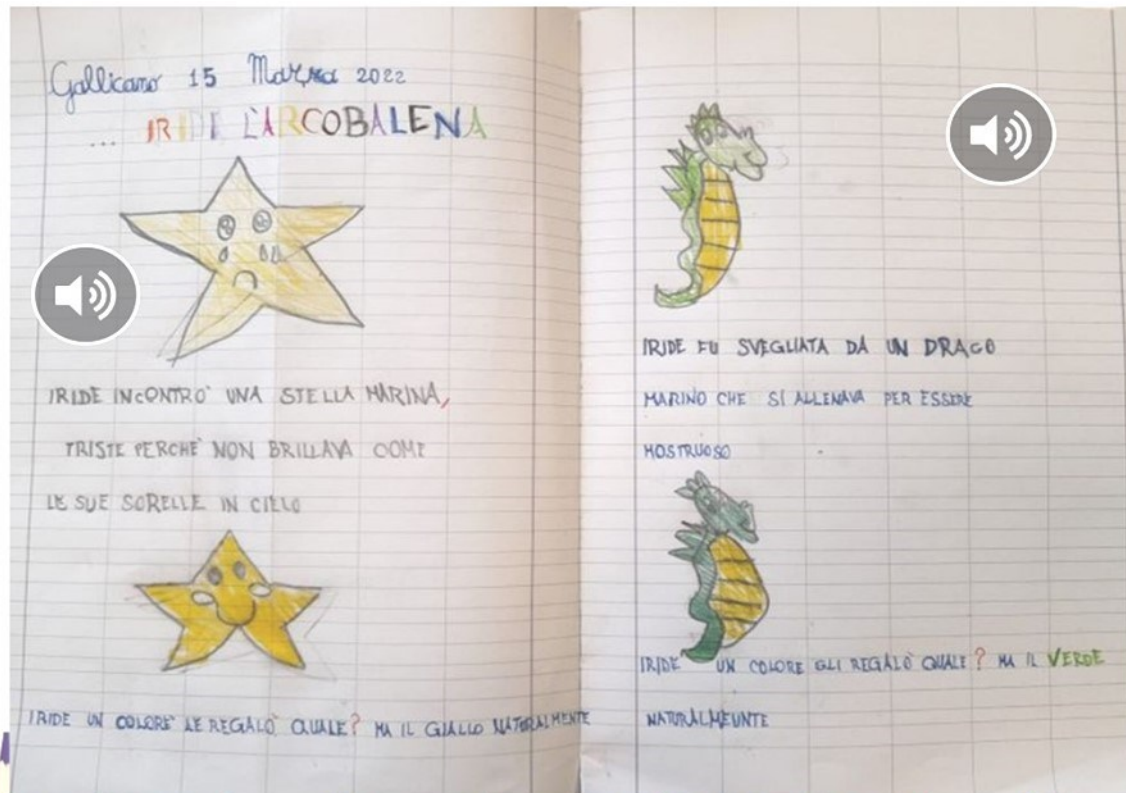 Gallicano 15 Marzo 2022
... IRIDE L'ARCOBALENA
IRIDE INCONTRO' UNA STELLA MARINA,
TRISTE PERCHE' NON BRILLAVA COME
LE SUE SORELLE IN CIELO
IRIDE UN COLORE LE REGALO' QUALE? MA IL GIALLO NATURALMENTE
IRIDE FU SVEGLIATA DA UN DRAGO
MARINO CHE SI ALLENAVA PER ESSERE
MOSTRUOSO
IRIDE UN COLORE GLI REGALO' QUALE? MA IL VERDE
NATURALMEUNTE